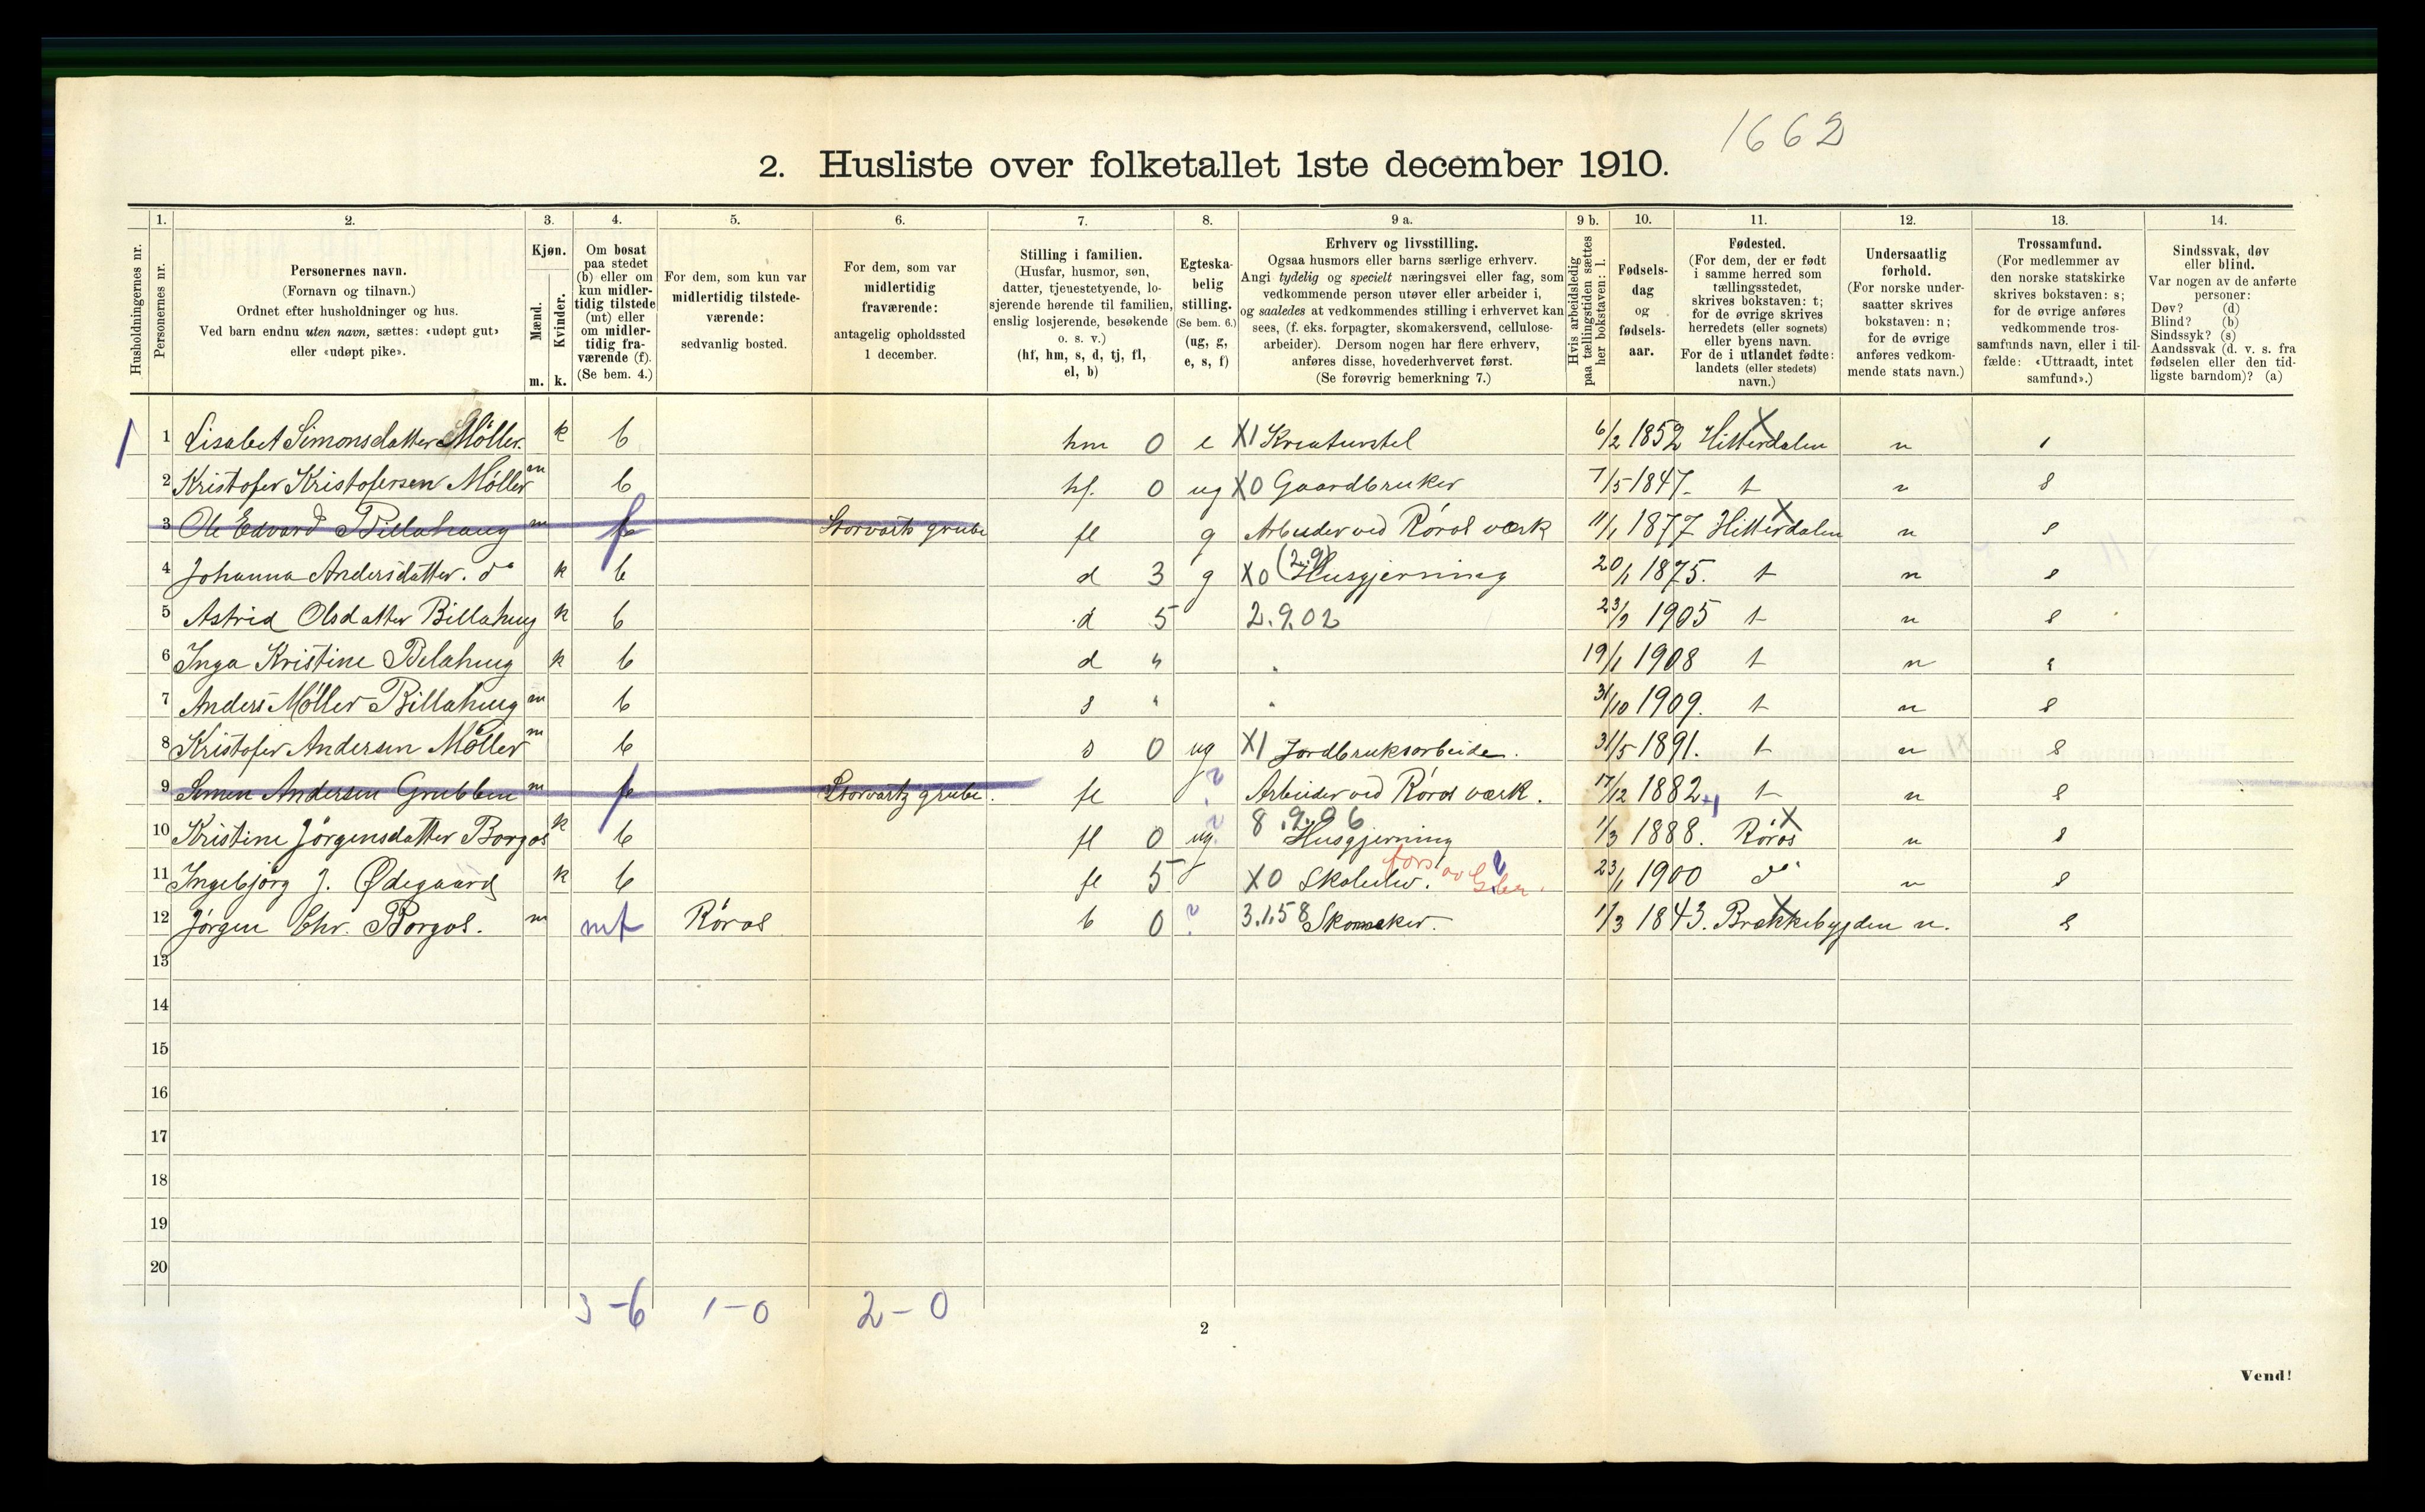 1662
2. Husliste over folketallet 1ste december 1910.
1. 2. 3. 4. 5. 6. 7. 8. 9 a. 9 b. 10. 11. 12. 13. 14.
Husholdningernes nr.
Personernes nr.
Personernes navn.
(Fornavn og tilnavn.)
Ordnet efter husholdninger og hus.
Ved barn endnu uten navn, sættes: «udøpt gut»
eller «udøpt pike».
Kjøn.
Mænd.
Kvinder.
m. k.
Om bosat
paa stedet
(b) eller om
kun midler-
tidig tilstede
(mt) eller
om midler-
tidig fra-
værende (f).
(Se bem. 4.)
For dem, som kun var
midlertidig tilstede-
værende:
sedvanlig bosted.
For dem, som var
midlertidig
fraværende:
antagelig opholdssted
1 december.
Stilling i familien.
(Husfar, husmor, søn,
datter, tjenestetyende, lo-
sjerende hørende til familien,
enslig losjerende, besøkende
o. s. v.)
(hf, hm, s, d, tj, fl,
el, b)
Egteska-
belig
stilling.
(Se bem. 6.)
(ug, g,
e, s, f)
Erhverv og livsstilling.
Ogsaa husmors eller barns særlige erhverv.
Angi tydelig og specielt næringsvei eller fag, som
vedkommende person utøver eller arbeider i,
og saaledes at vedkommendes stilling i erhvervet kan
sees, (f. eks. forpagter, skomakersvend, cellulose-
arbeider). Dersom nogen har flere erhverv,
anføres disse, hovederhvervet først.
(Se forøvrig bemerkning 7.)
Hvis arbeidsledig
paa tællingstiden sættes
her bokstaven: l.
Fødsels-
dag
og
fødsels-
aar.
Fødested.
(For dem, der er født
i samme herred som
tællingsstedet,
skrives bokstaven: t;
for de øvrige skrives
herredets (eller sognets)
eller byens navn.
For de i utlandet fødte:
landets (eller stedets)
navn.)
Undersaatlig
forhold.
(For norske under-
saatter skrives
bokstaven: n;
for de øvrige
anføres vedkom-
mende stats navn.)
Trossamfund.
(For medlemmer av
den norske statskirke
skrives bokstaven: s;
for de øvrige anføres
vedkommende tros-
samfunds navn, eller i til-
fælde: «Uttraadt, intet
samfund».)
Sindssvak, døv
eller blind.
Var nogen av de anførte
personer:
Døv? (d)
Blind? (b)
Sindssyk? (s)
Aandssvak (d. v. s. fra
fødselen eller den tid-
ligste barndom)? (a)
1 1 Lisabet Simonsdatter Möller. k b hm 0 e X1 Kreaturstel 6/2 1852 Hitterdalen n s
2 Kristofer Kristofersen Möller m b hf. 0 ug X0 Gaardbruker 7/5 1847. t n s
3 Ole Edvard Billahaug m f Storvarts grube fl g Arbeider ved Röros værk 11/1 1877 Hitterdalen n s
4 Johanna Andersdatter. do k b d 3 g X0 (2.9) Husgjerning 20/1 1875. t n s
5 Astrid Olsdatter Billahug k b d 5 2.9.02 23/2 1905 t n s
6 Inga Kristine Belahug k b d " 19/1 1908 t n s
7 Anders Möller Billahug m b s " 31/10 1909. t n s
8 Kristofer Andersen Möller m b s 0 ug X1 Jordbruksarbeide. 31/5 1891. t n s
9 Simen Andersen Grubben m f Storvartz grube. fl ? Arbeider ved Röros værk. 17/12 1882 t n s
10 Kristine Jörgensdatter Borgos k b fl 0 ug 8.9.06 Husgjerning 1/3 1888. Röros n s
11 Ingebjörg J. Ødegaard k b fl 5 X0 Skoleelev. fors. av 23/1 1900 do n s
12 Jörgen Chr. Borgos. m mt Röros b 0 ? 3.1.58 Skomaker. 1/3 1843. Brækkebygden n. s
13
14
15
16
17
18
19
20
3-6 1-0 2-0
2
Vend!